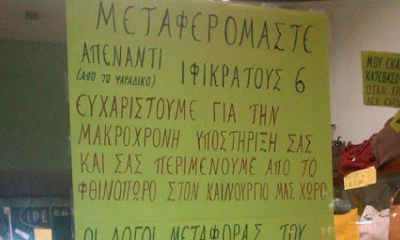 ΜΕΤΑΦΕΡΟΜΑΣΤΕ
ΑΠΕΝΑΝΤΙ
(ΑΠΟ ΤΟ ΨΑΡΑΔΙΚΟ) ΙΦΙΚΡΑΤΟΥΣ 6
ΕΥΧΑΡΙΣΤΟΥΜΕ ΓΙΑ ΤΗΝ
ΜΑΚΡΟΧΡΟΝΗ ΥΠΟΣΤΗΡΙΞΗ ΣΑΣ
ΚΑΙ ΣΑΣ ΠΕΡΙΜΕΝΟΥΜΕ ΑΠΟ ΤΟ
ΦΘΙΝΟΠΩΡΟ ΣΤΟΝ ΚΑΙΝΟΥΡΓΙΟ ΜΑΣ ΧΩΡΟ
ΟΙ ΛΟΓΟΙ ΜΕΤΑΦΟΡΑΣ ΤΟΥ
ΜΟΥ ΣΚΑ
ΚΑΤΕΒΑΣΟ
ΟΤΑΝ
ΔΕΝ